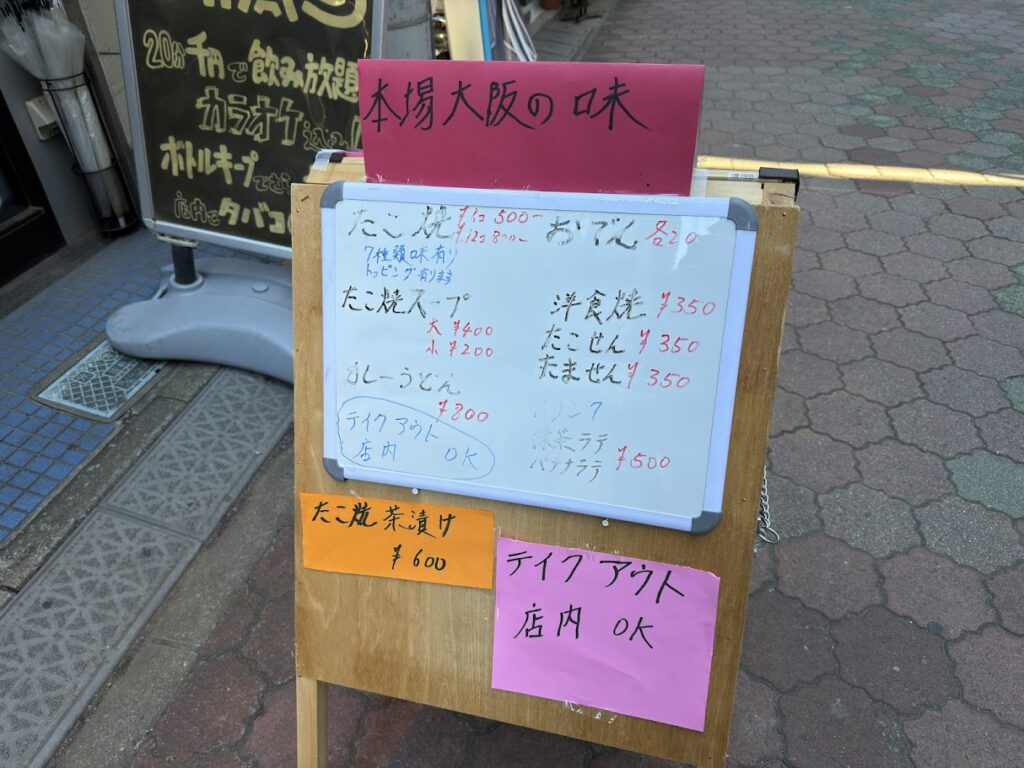 20分千円で飲み放題
カラオケ込み!
ボトルキープできる
店内でタバコ
本場大阪の味
たこ焼 ¥500-
¥12コ 800-
7種類味有り
トッピング有ります
たこ焼スープ
大 ¥400
小 ¥200
カレーうどん
¥800
テイクアウト
店内 OK
おでん 各20
洋食焼 ¥350
たこせん ¥350
たません ¥350
ドリンク
抹茶ラテ
バナナラテ ¥500
たこ焼茶漬け
¥600
テイクアウト
店内 OK